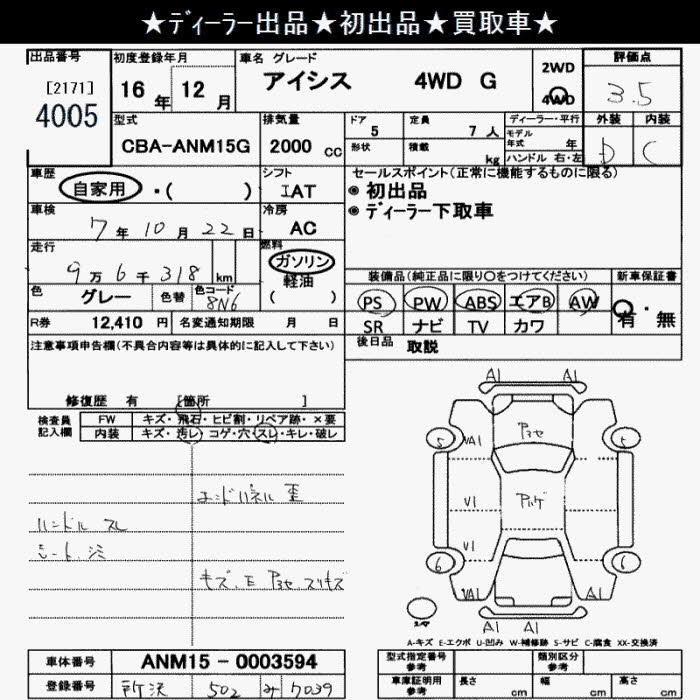 ★ﾃﾞｨｰﾗｰ出品★初出品★買取車★
出品番号
[2171]
4005
初度登録年月
16 年 12 月
車名 グレード
アイシス 4WD G
2WD
4WD
評価点
3.5
型式
CBA-ANM15G
排気量
2000 cc
ドア
5
定員
7 人
形状
積載
kg
ディーラー・平行
モデル年式 年
ハンドル 右・左
外装
D
内装
C
車歴
自家用 ・( )
シフト
IAT
セールスポイント(正常に機能するものに限る)
◉ 初出品
◉ ディーラー下取車
車検
7 年 10 月 22 日
冷房
AC
走行
9 万 6 千 318 km
燃料
ガソリン
軽油
( )
色
グレー
色替
色コード
8N6
装備品(純正品に限り○をつけてください)
新車保証書
PS PW ABS エアB AW
SR ナビ TV カワ
有 ・ 無
R券 12,410 円
名変通知期限 月 日
後日品 取説
注意事項申告欄(不具合内容等は具体的に記入して下さい)
修復歴 有 [箇所 ]
検査員記入欄
FW キズ・飛石・ヒビ割・リペア跡・×要
内装 キズ・汚レ・コゲ・穴・スレ・キレ・破レ
エンドパネル 歪
ハンドル スレ
シート 汚
キズ、E Pアセ スリキズ
A1 A1
5 VA1 Pアセ 5
V1 Pハゲ
V1
6 VA1 A1 6
A1 A1
A-キズ E-エクボ U-凹み W-補修跡 S-サビ C-腐食 XX-交換済
車体番号 ANM15 - 0003594
登録番号 所沢 502 み 7039
型式指定番号
参考
類別区分
参考
車庫証明用
参考
長さ cm
幅 cm
高さ cm